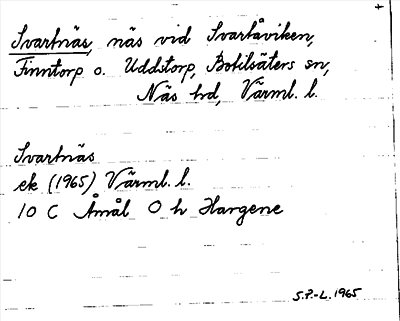 +
Svartnäs, näs vid Svartåviken,
Finntorp o. Uddstorp, Botilsäters sn,
Näs hd, Värml. l.
Svartnäs
ek (1965) Värml. l.
10 C Åmål O h Hargene
S.P.-L. 1965